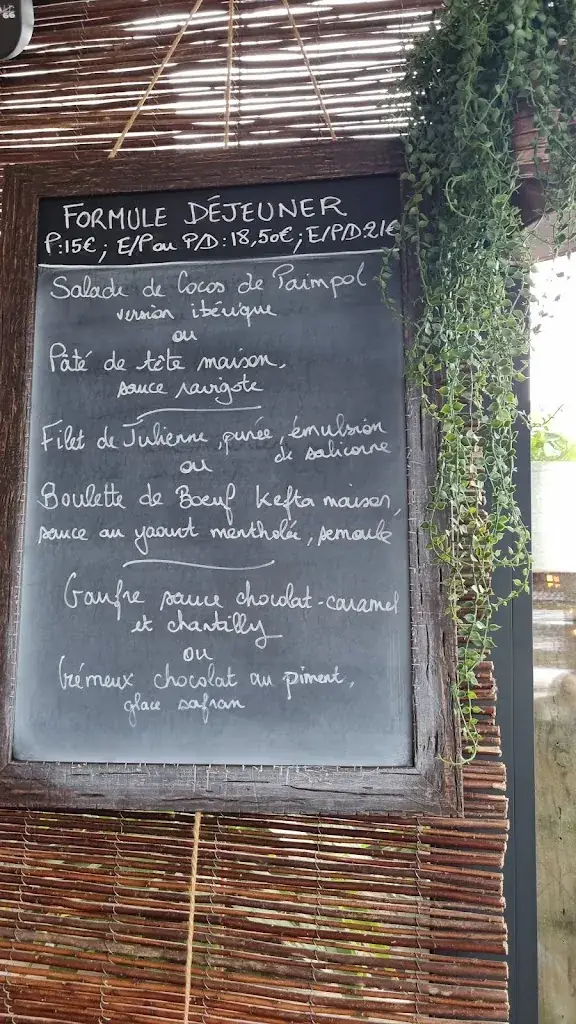 FORMULE DÉJEUNER
P:15€; E/P ou P/D:18,50€; E/P/D:21€
Salade de Cocos de Paimpol
version ibérique
ou
Pâté de tête maison,
sauce ravigote
Filet de Julienne, purée, émulsion
de salicorne
ou
Boulette de Boeuf Kefta maison,
sauce au yaourt mentholée, semoule
Gaufre sauce chocolat-caramel
et chantilly
ou
Crémeux chocolat au piment,
glace safran